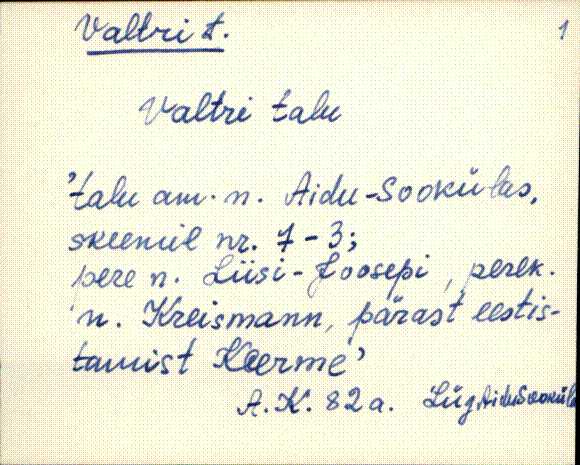 Valtri t.
1
Valtri talu
'talu am. n. Aidu-Sookülas,
skeemil nr. 7-3;
pere n. Liisi-Joosepi, perek.
n. Kreismann, pärast eestis-
tamist Keerme'
A.K. 82 a. Lüg, Aidu Sooküla